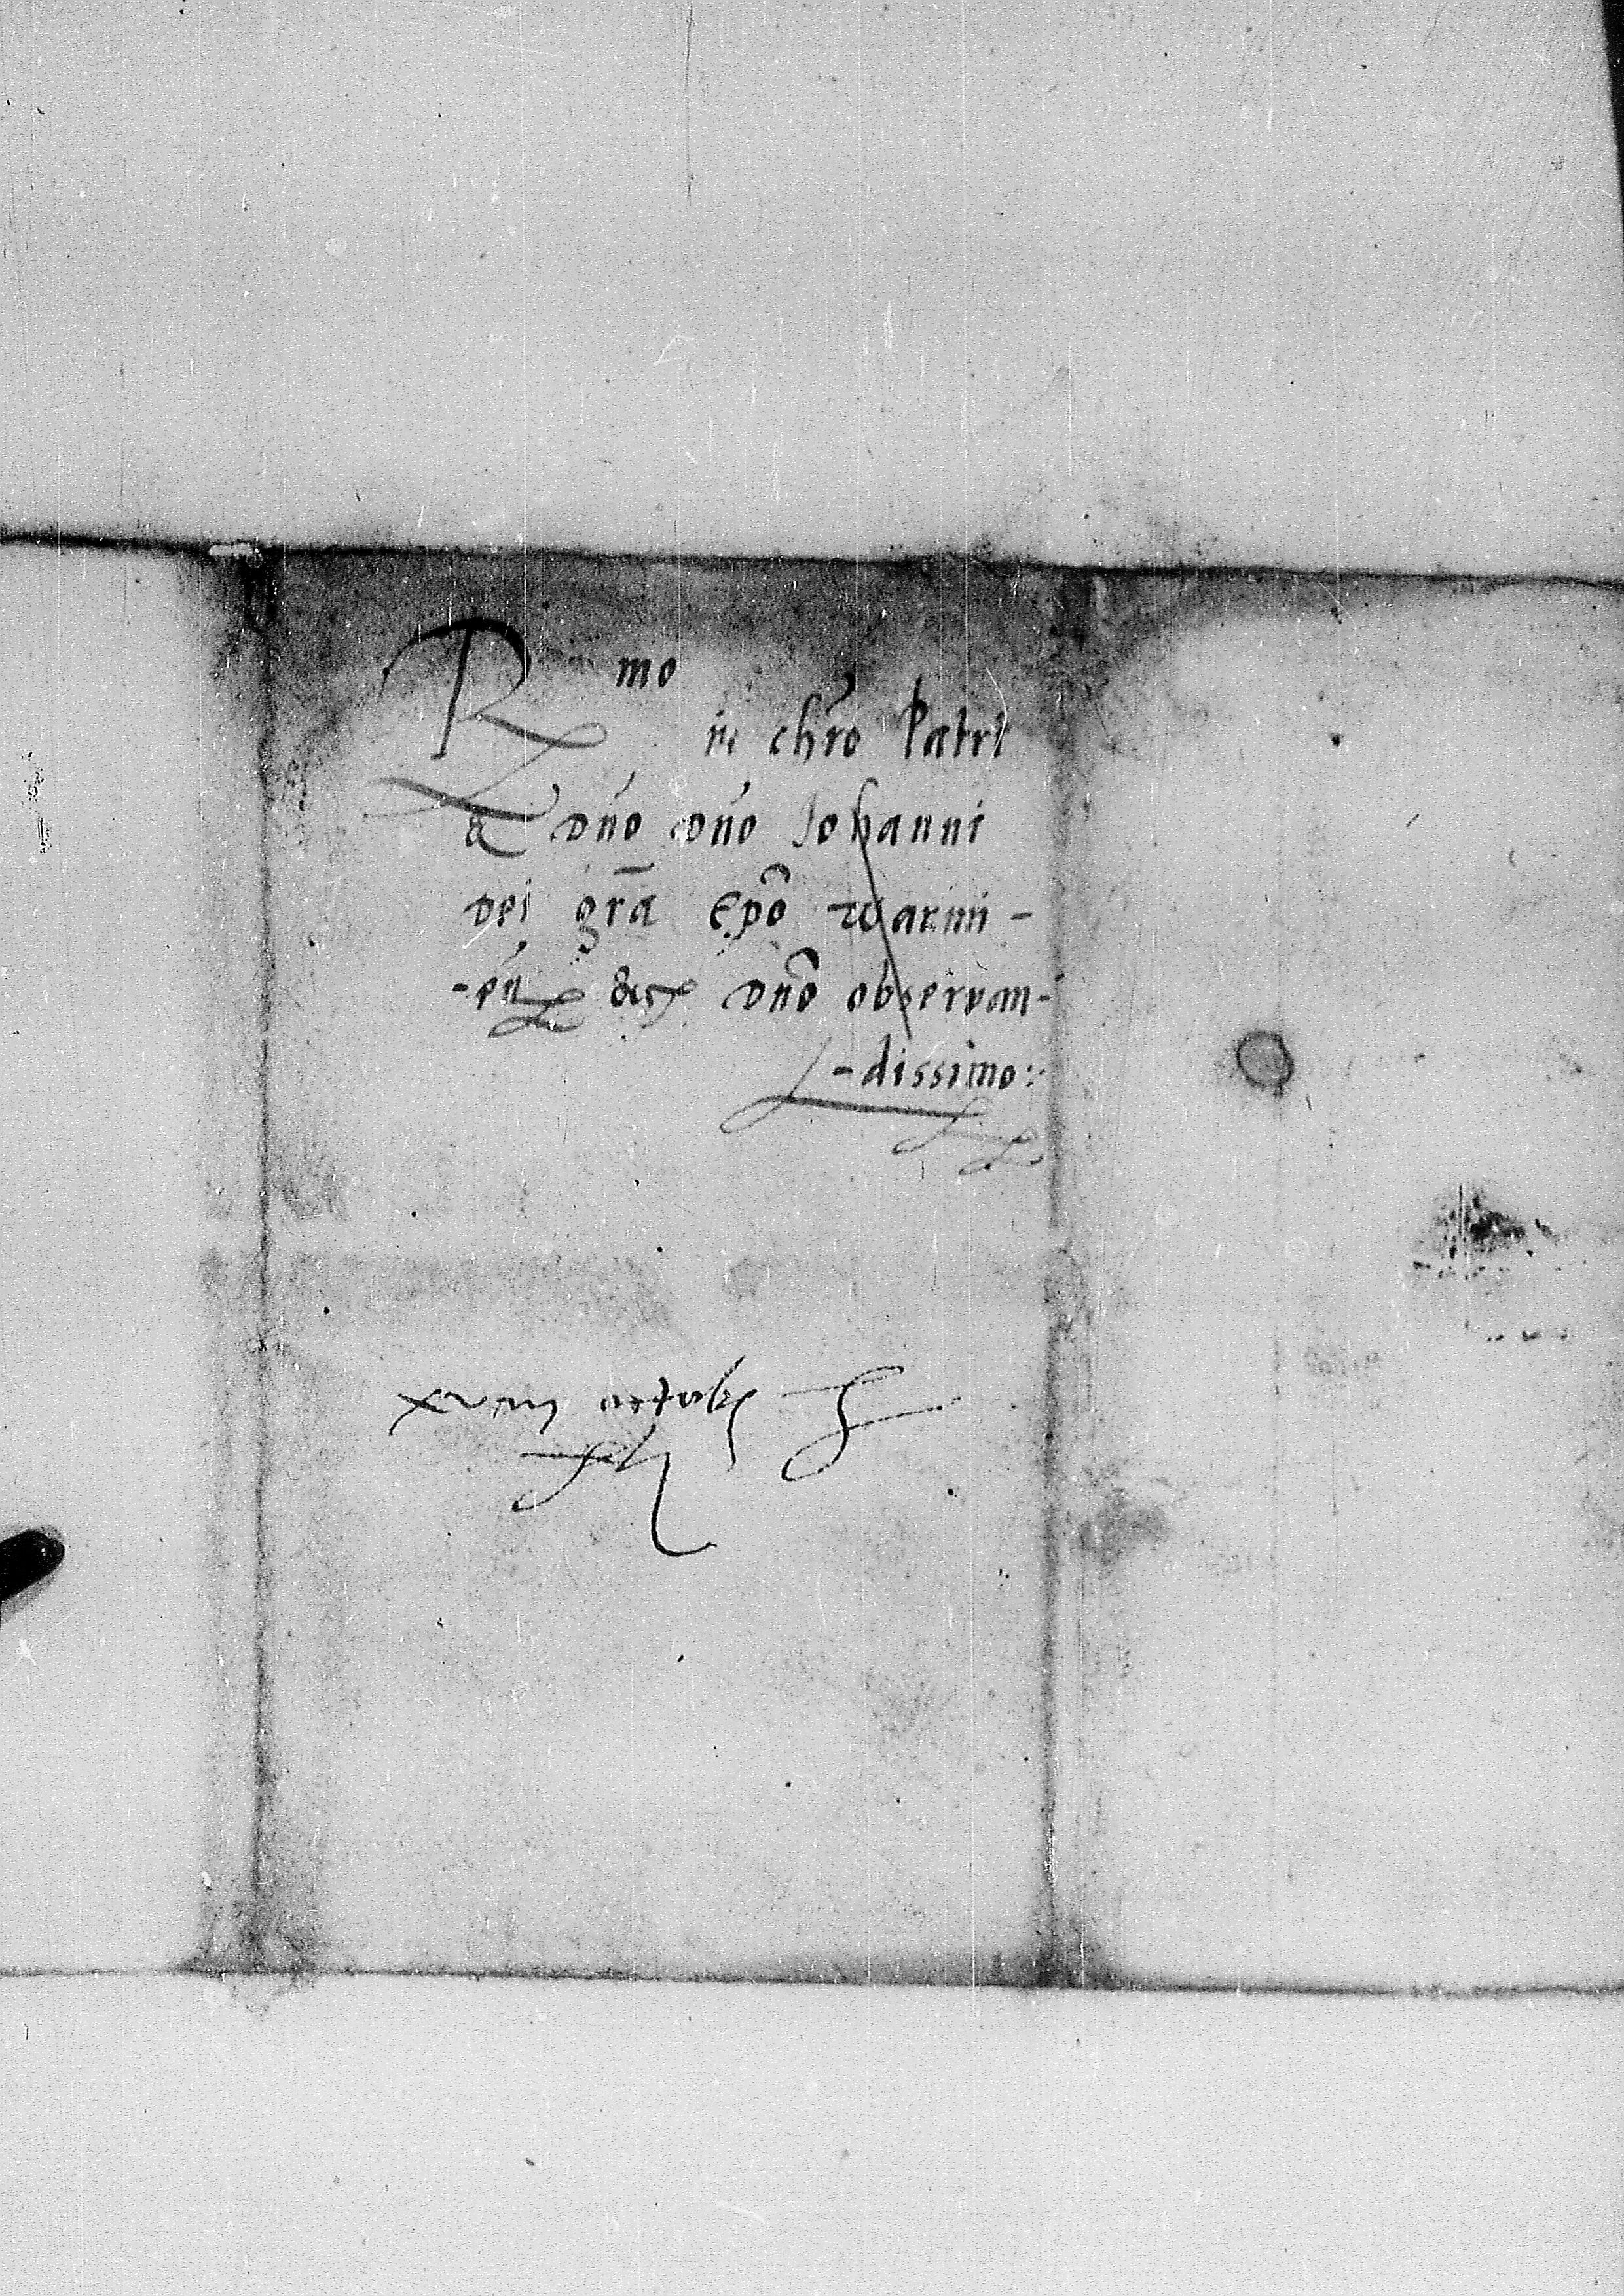 R mo
in chr̄o Patri
& dn̄o dn̄o Johanni
dei gr̄a Ep̄o warmi-
-en̄ &c dn̄o observan-
-dissimo:
xviii octobr